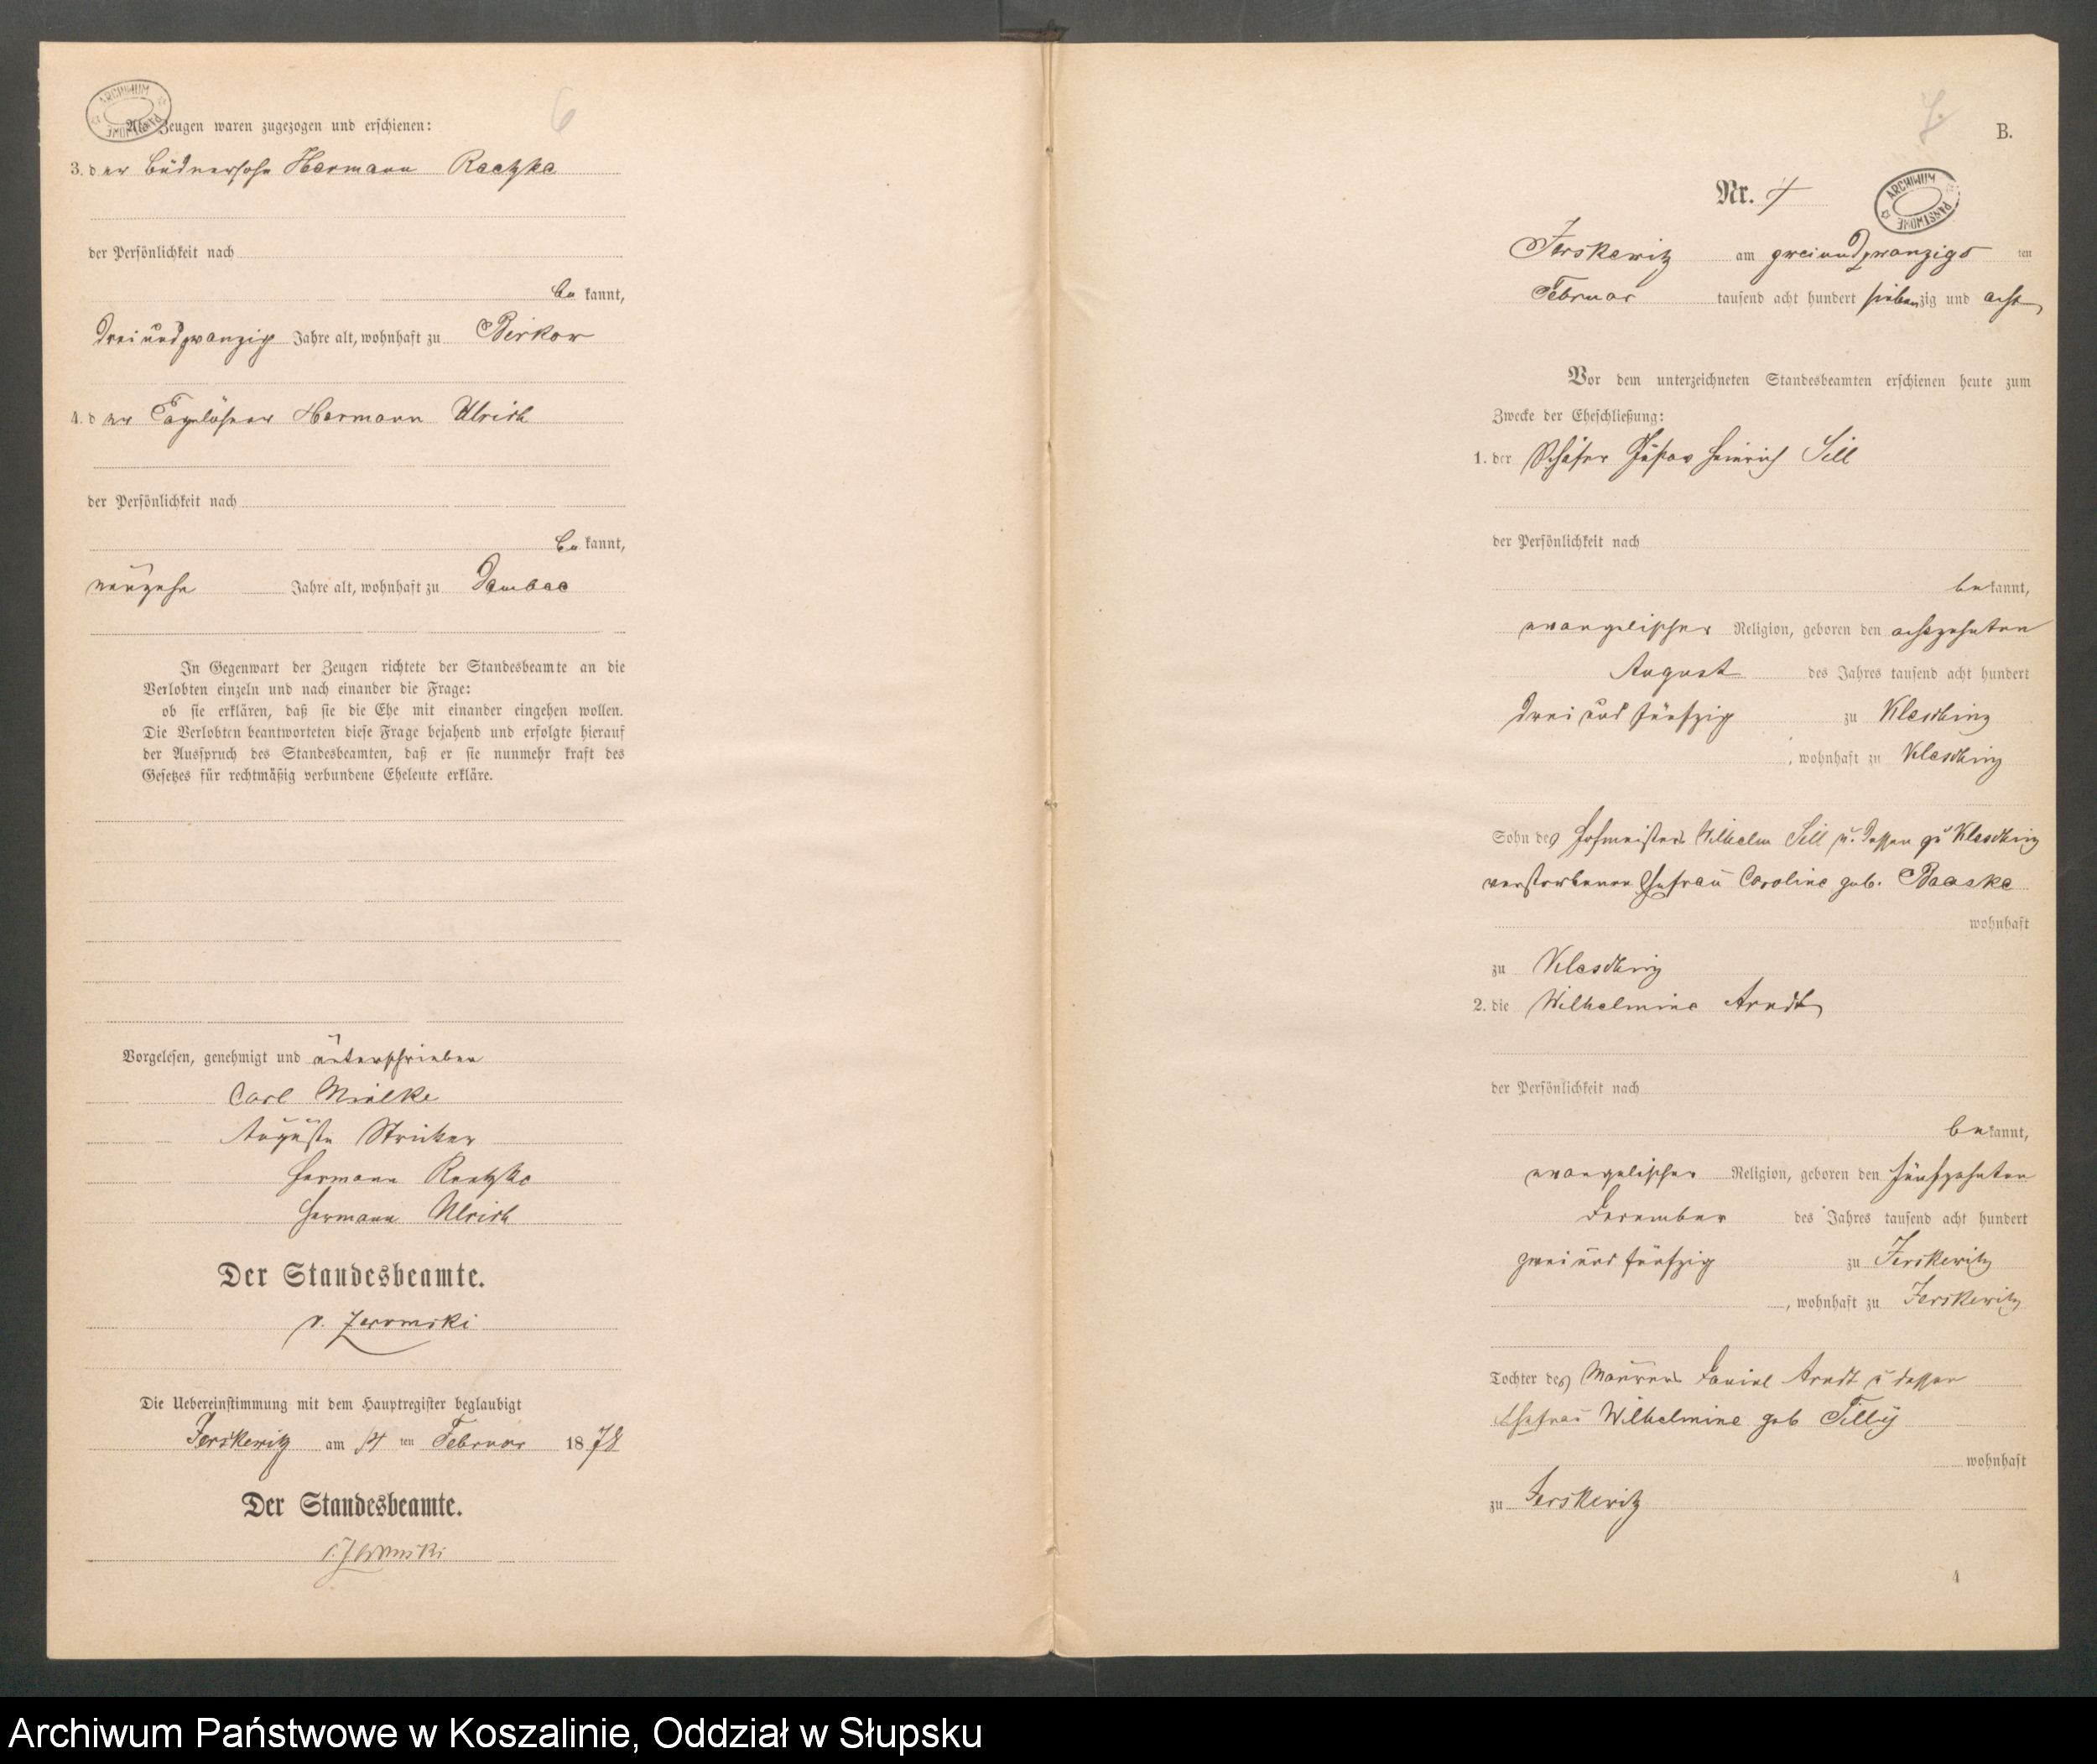 ARCHIWUM PAŃSTWOWE
6
Als Zeugen waren zugezogen und erschienen:
3. der Büdnersohn Hermann Raetzke
der Persönlichkeit nach
be kannt,
drei und zwanzig Jahre alt, wohnhaft zu Birkow
4. der Tagelöhner Hermann Ulrich
der Persönlichkeit nach
be kannt,
neunzehn Jahre alt, wohnhaft zu Dambee
In Gegenwart der Zeugen richtete der Standesbeamte an die
Verlobten einzeln und nach einander die Frage:
ob sie erklären, daß sie die Ehe mit einander eingehen wollen.
Die Verlobten beantworteten diese Frage bejahend und erfolgte hierauf
der Ausspruch des Standesbeamten, daß er sie nunmehr kraft des
Gesetzes für rechtmäßig verbundene Eheleute erkläre.
Vorgelesen, genehmigt und unterschrieben
Carl Mielke
Auguste Stricker
Hermann Raetzke
Hermann Ulrich
Der Standesbeamte.
v. Zeromski
Die Uebereinstimmung mit dem Hauptregister beglaubigt
Jerskewitz am 14 ten Februar 1878
Der Standesbeamte.
v. Zeromski
7.
B.
Nr. 4
ARCHIWUM PAŃSTWOWE
Jerskewitz am zwei und zwanzigs ten
Februar tausend acht hundert siebenzig und acht
Vor dem unterzeichneten Standesbeamten erschienen heute zum
Zwecke der Eheschließung:
1. der Schäfer Gustav Heinrich Sill
der Persönlichkeit nach
be kannt,
evangelischer Religion, geboren den achtzehnten
August des Jahres tausend acht hundert
drei und fünfzig zu Kleschinz
, wohnhaft zu Kleschinz
Sohn des Hofmeisters Wilhelm Sill u. dessen zu Kleschinz
verstorbenen Ehefrau Caroline geb. Baaske
wohnhaft
zu Kleschinz
2. die Wilhelmine Arndt
der Persönlichkeit nach
be kannt,
evangelischer Religion, geboren den fünfzehnten
Dezember des Jahres tausend acht hundert
zwei und fünfzig zu Jerskewitz
, wohnhaft zu Jerskewitz
Tochter des Maurers Daniel Arndt u dessen
Ehefrau Wilhelmine geb Tilly
wohnhaft
zu Jerskewitz
4
Archiwum Państwowe w Koszalinie, Oddział w Słupsku